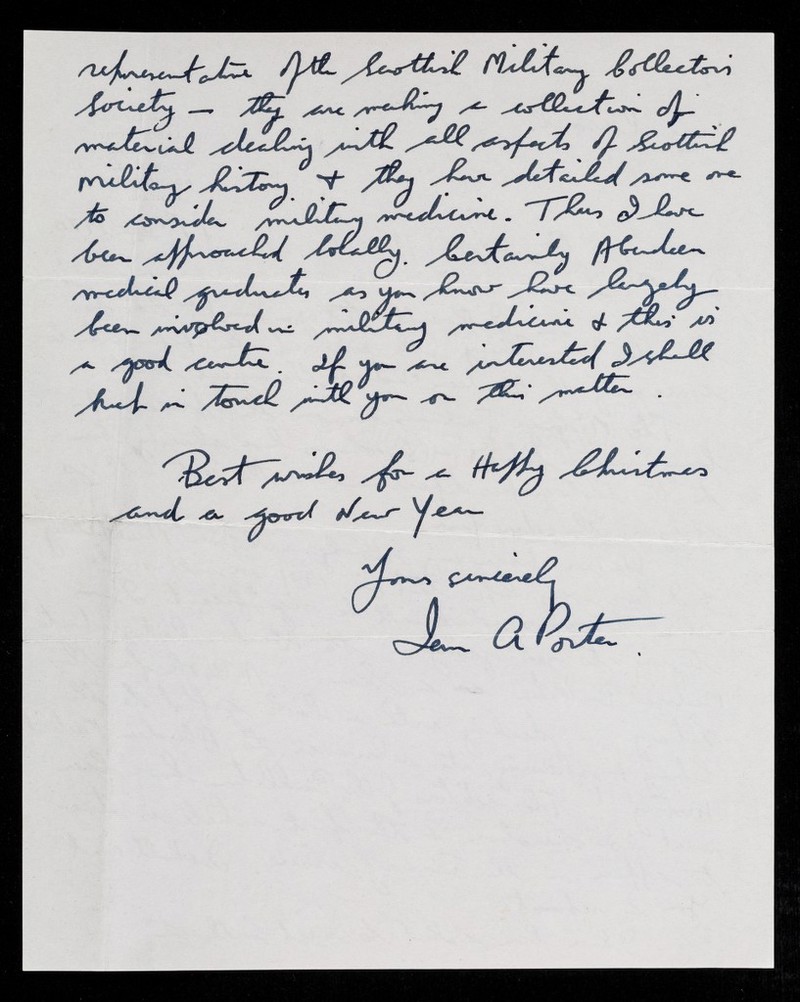 representative of the Scottish Military Collectors
Society – they are making a collection of
material dealing with all aspects of Scottish
Military history & they have detailed some one
to consider military medicine. Thus I have
been approached locally. Certainly Aberdeen
medical graduates as you know have largely
been involved in military medicine & this is
a good centre. If you are interested I shall
keep in touch with you on this matter.
Best wishes for a Happy Christmas
and a good New Year
Yours sincerely
Ian A Porter.